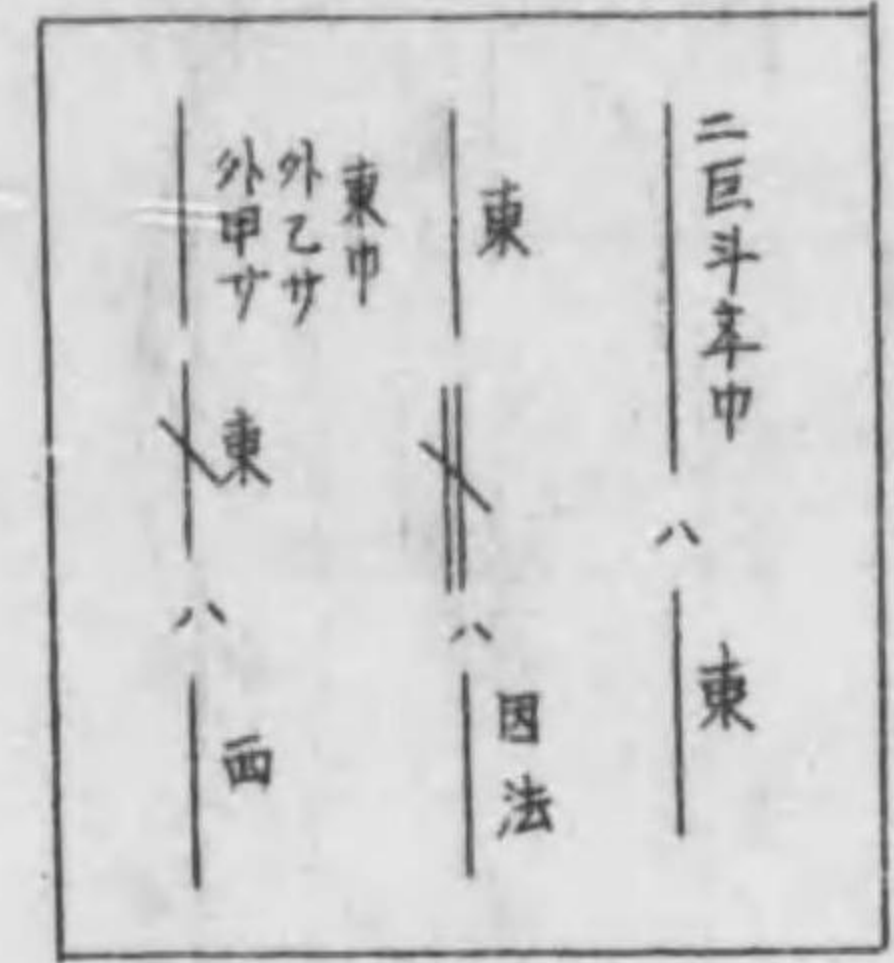 二巨斗巾
ハ
東
東
ハ
因法
東巾
外乙サ
外甲サ
東
ハ
西